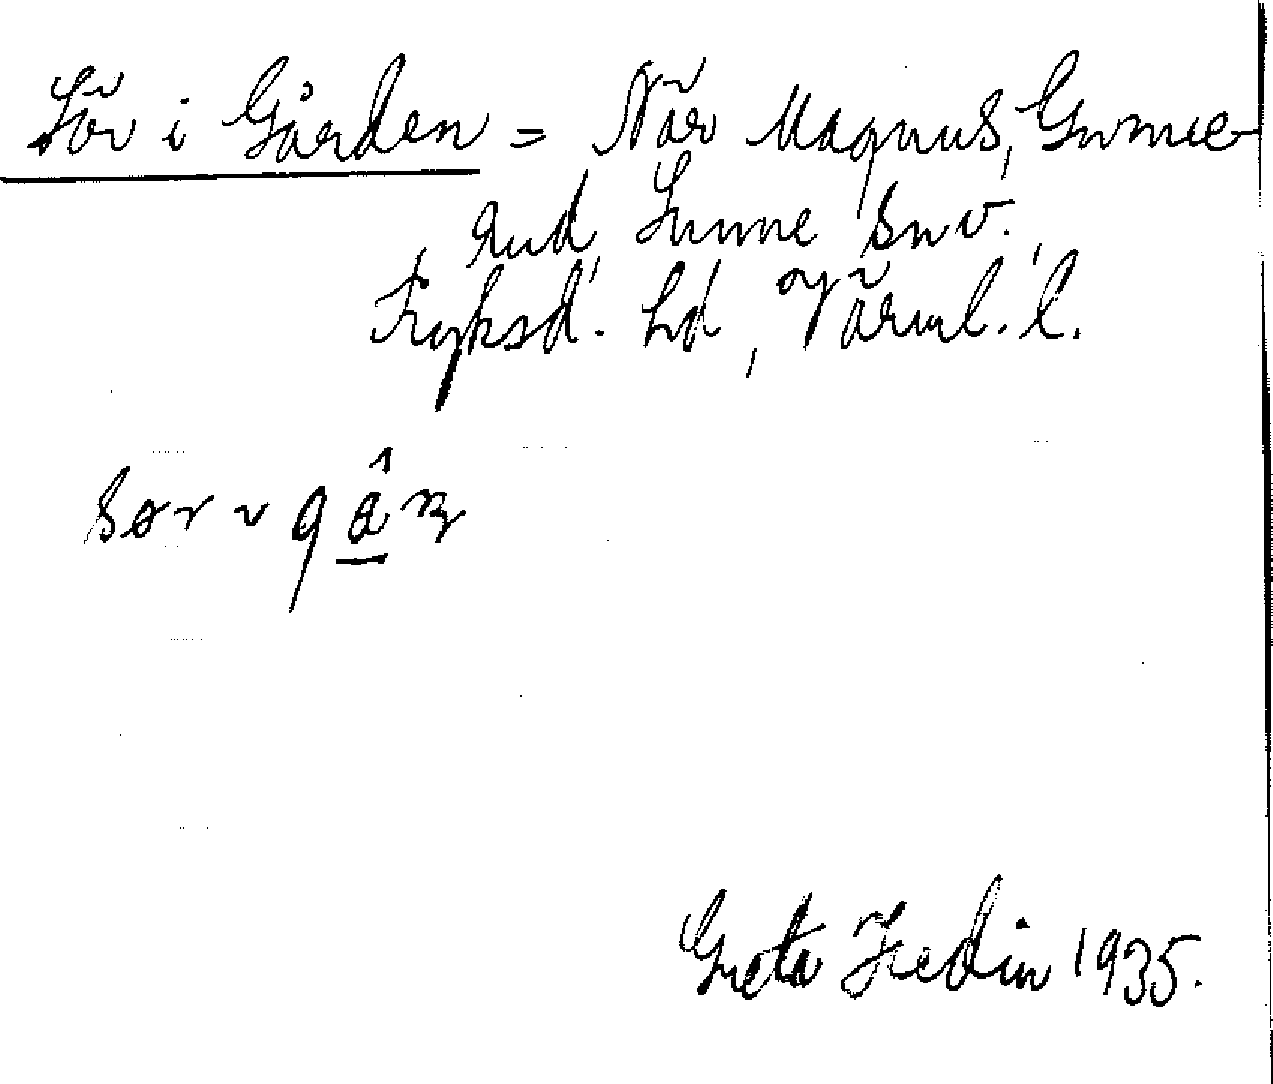 Sör i Gården = När Magnus, Gunne-
rud, Sunne snv.,
Fryksd. hd, Värml. l.
Greta Hedin 1935.